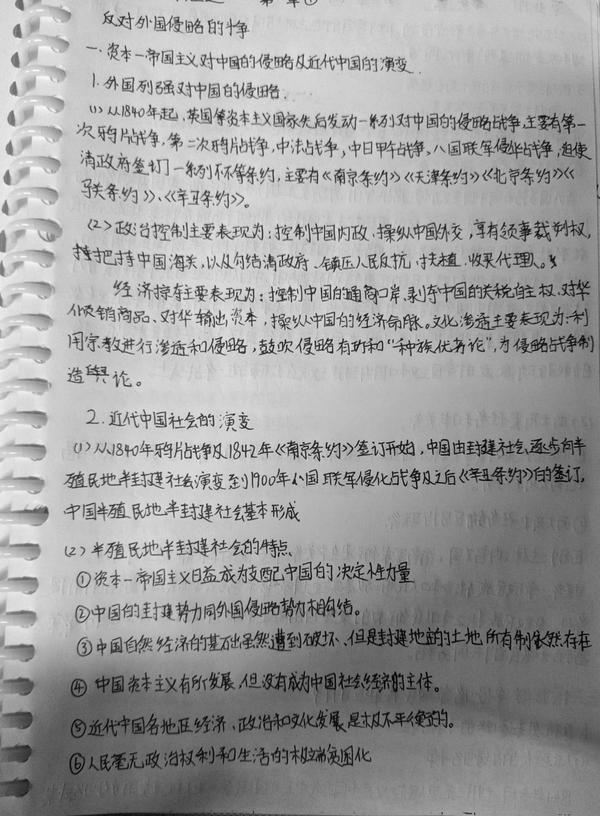 第一章①
反对外国侵略的斗争
一、资本一帝国主义对中国的侵略及近代中国的演变.
1.外国列强对中国的侵略.
(1)从1840年起,英国等资本主义国家先后发动一系列对中国的侵略战争,主要有第一
次鸦片战争,第二次鸦片战争,中法战争,中日甲午战争,八国联军侵华战争,迫使
清政府签订一系列不平等条约,主要有《南京条约》《天津条约》《北京条约》《
马关条约》、《辛丑条约》。
(2)政治控制主要表现为:控制中国内政、操纵中国外交,享有领事裁判权,
把持中国海关,以及勾结清政府、镇压人民反抗、扶植、收买代理人。
经济掠夺主要表现为:控制中国的通商口岸,剥夺中国的关税自主权、对华
倾销商品、对华输出资本,操纵中国的经济命脉。文化渗透主要表现为:利
用宗教进行渗透和侵略,鼓吹侵略有功和“种族优劣论”,为侵略战争制
造舆论。
2.近代中国社会的演变
(1)从1840年鸦片战争及1842年《南京条约》签订开始,中国由封建社会逐步向半
殖民地半封建社会演变至到1900年八国联军侵华战争及之后《辛丑条约》的签订,
中国半殖民地半封建社会基本形成
(2)半殖民地半封建社会的特点、
①资本一帝国主义日益成为支配中国的决定性力量
②中国的封建势力同外国侵略势力相勾结。
③中国自然经济的基础虽然遭到破坏、但是封建地主的土地所有制依然存在
④ 中国资本主义有所发展,但没有成为中国社会经济的主体。
⑤近代中国各地区经济、政治和文化发展是极不平衡的。
⑥人民毫无政治权利和生活的极端贫困化